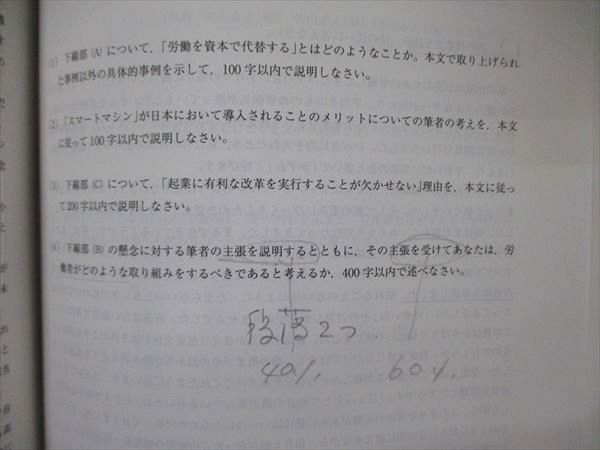 (1) 下線部 (A) について,「労働を資本で代替する」とはどのようなことか。本文で取り上げられ
た事例以外の具体的事例を示して, 100字以内で説明しなさい。
(2) 「スマートマシン」が日本において導入されることのメリットについての筆者の考えを, 本文
に従って100字以内で説明しなさい。
(3) 下線部 (C) について,「起業に有利な改革を実行することが欠かせない」理由を, 本文に従っ
て200字以内で説明しなさい。
(4) 下線部 (B) の懸念に対する筆者の主張を説明するとともに, その主張を受けてあなたは, 労
働者がどのような取り組みをするべきであると考えるか, 400字以内で述べなさい。
段落2つ.
40%. 60%.